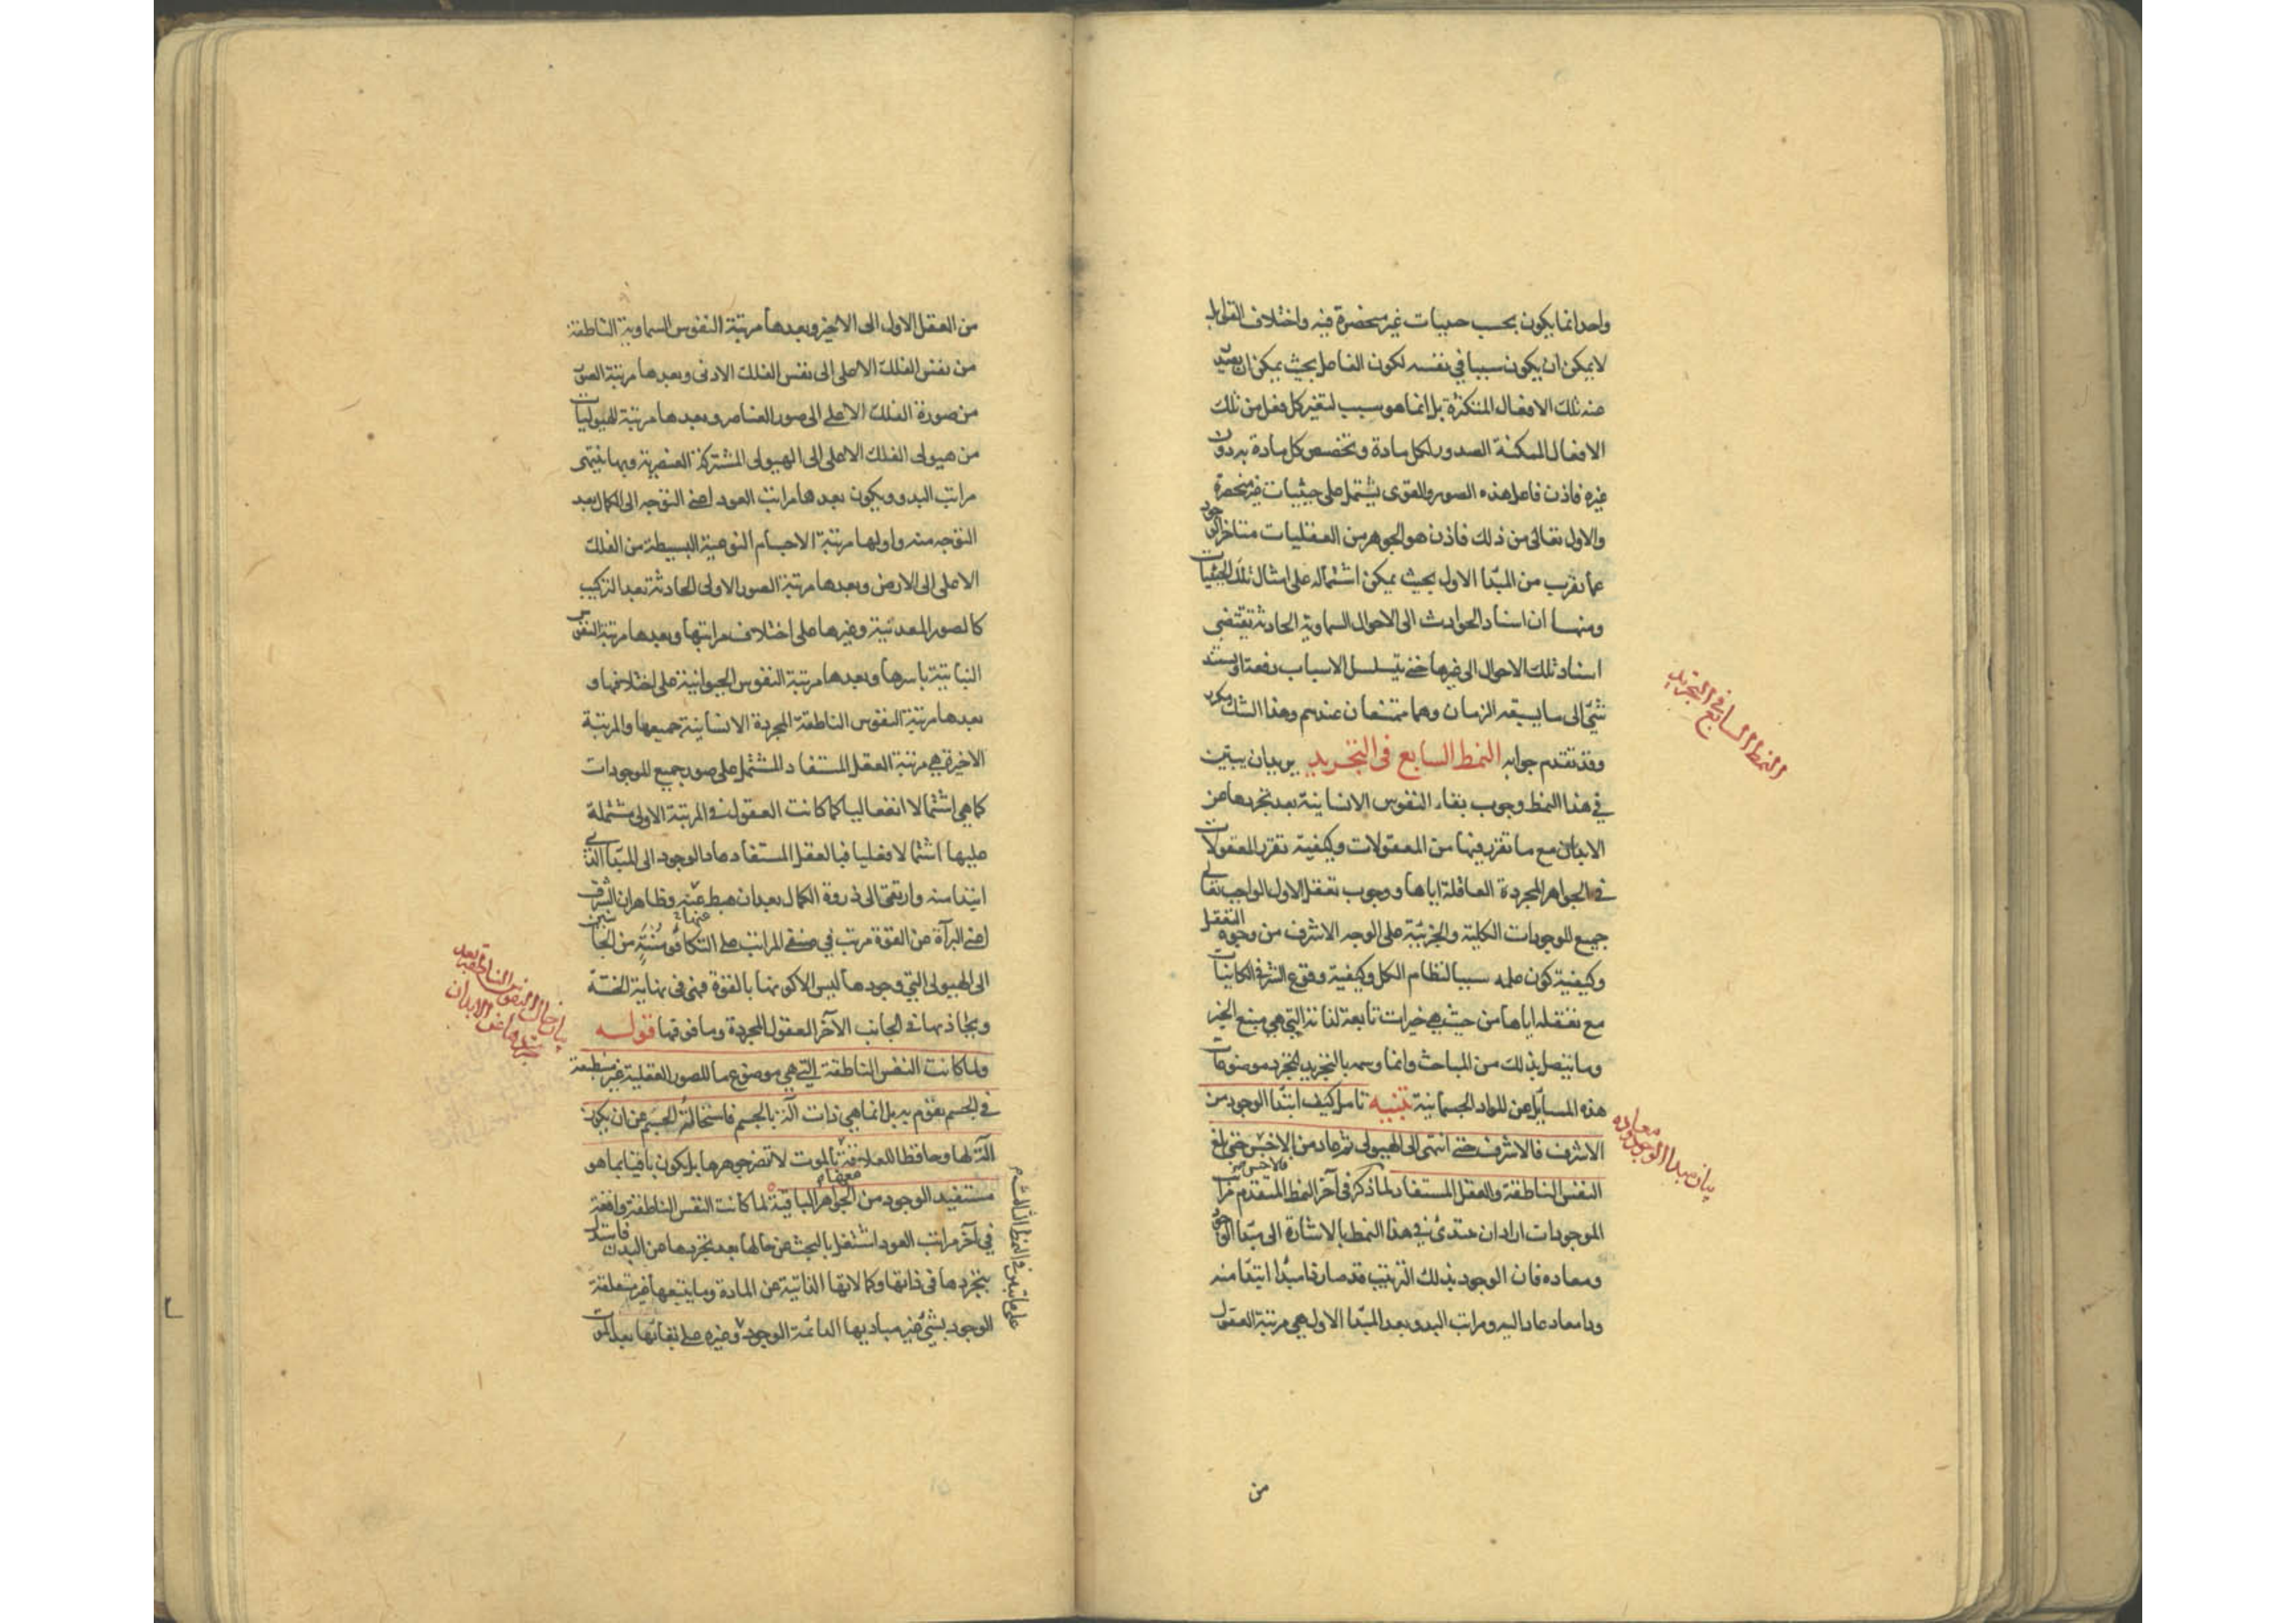 واحد انما يكون بحسب حيثيات غير منحصرة فيه واختلاف القوابل
لا يمكن ان يكون سببا في نفسه لكون الفاعل بحيث يمكن ان يصدر
عنه تلك الافعال المتكثرة بل انما هو سبب لتعين كل فعل من تلك
الافعال الممكنة الصدور لكل مادة وتخصص كل مادة به دون
غيره فاذن فاعل هذه الصور والقوى يشتمل على حيثيات غير منحصرة
والاول تعالى من ذلك فاذن هو الجوهر من العقليات متأخر الوجود
عما تقرب من المبدأ الاول بحيث يمكن اشتماله على امثال تلك الحيثيات
ومنها ان اسناد الحوادث الى الاحوال السماوية الحادثة تقتضى
اسناد تلك الاحوال الى غيرها حتى يتسلسل الاسباب دفعة او يستند
شئ الى ما يسبقه الزمان وهما ممتنعان عندهم وهذا الشك مكرر
وقد تقدم جوابه النمط السابع فى التجريد يريد ان يبين
في هذا النمط وجوب بقاء النفوس الانسانية بعد تجردها عن
الابدان مع ما تقرر فيها من المعقولات وكيفية تقرر المعقولات
في الجواهر المجردة العاقلة اياها ووجوب تعقل الاول الواجب تعالى
جميع الموجودات الكلية والجزئية على الوجه الاشرف من وجوه التعقل
وكيفية كون علمه سببا لنظام الكل وكيفية وقوع الشر في الكائنات
مع تعقله اياها من حيث هي خيرات تابعة لذاته التي هي منبع الخير
وما يتصل بذلك من المباحث وانما وسمه بالتجريد لتجرد موضوعات
هذه المسائل عن المواد الجسمانية تنبيه تامل كيف ابتدأ الوجود من
الاشرف فالاشرف حتى انتهى الى الهيولى ثم عاد من الاخس فالاخس حتى بلغ
النفس الناطقة والعقل المستفاد لما ذكر في آخر النمط المتقدم مراتب
الموجودات اراد ان يبتدئ في هذا النمط بالاشارة الى مبدأ الوجود
ومعاده فان الوجود بذلك الترتيب قد صار ذا مبدأ ابتدأ منه
وذا معاد عاد اليه ومراتب البدو بعد المبدأ الاول هي مرتبة العقول
من
النمط السابع في التجريد
بيان مبدأ الوجود ومعاده
من العقل الاول الى الاخير وبعدها مرتبة النفوس السماوية الناطقة
من نفس الفلك الاعلى الى نفس الفلك الادنى وبعدها مرتبة الصور
من صورة الفلك الاعلى الى صور العناصر وبعدها مرتبة الهيوليات
من هيولى الفلك الاعلى الى الهيولى المشتركة العنصرية وبها ينتهى
مراتب البدو ويكون بعدها مراتب العود اعني التوجه الى الكمال بعد
التوجه منه واولها مرتبة الاجسام النوعية البسيطة من الفلك
الاعلى الى الارض وبعدها مرتبة الصور الاولى الحادثة بعد التركيب
كالصور المعدنية وغيرها على اختلاف مراتبها وبعدها مرتبة النفوس
النباتية باسرها وبعدها مرتبة النفوس الحيوانية على اختلافها و
بعدها مرتبة النفوس الناطقة المجردة الانسانية جميعها والمرتبة
الاخيرة هي مرتبة العقل المستفاد المشتمل على صور جميع الموجودات
كما هي اشتمالا انفعاليا كما كانت العقول في المرتبة الاولى مشتملة
عليها اشتمالا فعليا فبالعقل المستفاد عاد الوجود الى المبدأ الذي
ابتدأ منه وارتقى الى ذروة الكمال بعد ان هبط عنه وظاهر ان الشرف
اعني البرآة عن القوة مرتب في صنفي المراتب على التكافؤ من الجانبين
الى الهيولى التي وجودها ليس الا كونها بالقوة فهي في نهاية الخسة
ويحاذيها في الجانب الآخر العقول المجردة وما فوقها قوله
ولما كانت النفس الناطقة التي هي موضوع ما للصور العقلية غير منطبعة
في الجسم تقوم به بل انما هي ذات آلة بالجسم فاستحالة الجسم عن ان يكون
آلة لها وحافظا للعلاقة معها بالموت لا تضر جوهرها بل يكون باقيا بما هو
مستفيد الوجود من الجواهر الباقية لما كانت النفس الناطقة واقعة
في آخر مراتب العود اشتغل بالبحث عن حالها بعد تجردها عن البدن فاستدل
بتجردها في ذاتها وكمالاتها الذاتية عن المادة وما يتبعها غير متعلقة
الوجود بشئ غير مباديها الدائمة الوجود وغيره على بقائها بعد الموت
على ما تبين في النمط الثالث
بيان حال النفوس الناطقة بعد تجردها عن الابدان